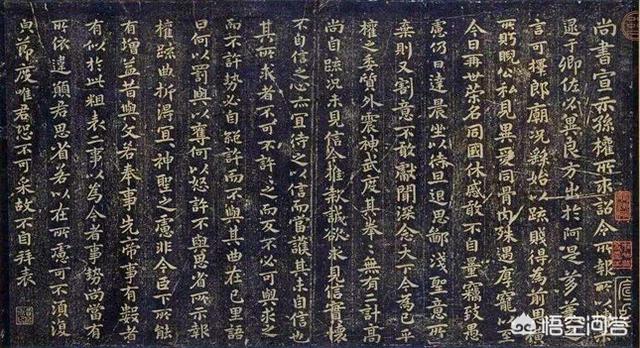 尚書宣示孫權所求詔令所報所以博示
逮于卿佐必冀良方出於阿是芻蕘之
言可擇郎廟況繇始以疏賤得為前恩橫
所眄睨公私見異愛同骨肉殊遇厚寵以至
今日再世榮名同國休慼敢不自量竊致愚
慮仍日達晨坐以待旦退思鄙淺聖意所
棄則又割意不敢獻聞深念天下今為已平
權之委質外震神武度其拳拳無有二計高
尚自疏況未見信今推款誠欲求見信實懷
不自信之心亦宜待之以信而當護其未自信也
其所求者不可不許許之而反不必可與求之
而不許勢必自絕許而不與其曲在己里語
曰何以罰與以奪何以怒許不與思省所示報
權疏曲折得宜宜神聖之慮非今臣下所能
有增益昔與文若奉事先帝事有數者
有似於此粗表二事以為今者事勢尚當有
所依違願君思省若以在所慮可不須復
皃節度唯君恐不可采故不自拜表
悟空问答